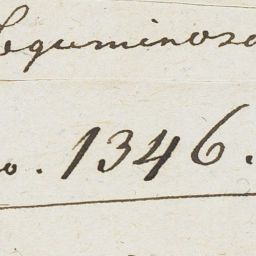 Leguminosa
o. 1346.